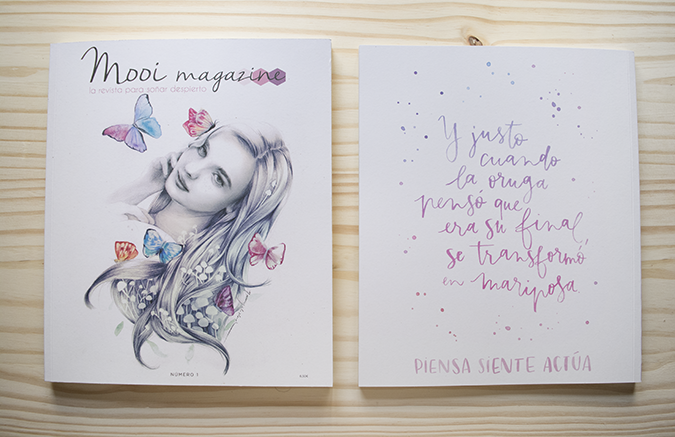 Mooi magazine
la revista para soñar despierto
NÚMERO 1
Y justo
cuando
la oruga
pensó que
era su final,
se transformó
en mariposa.
PIENSA SIENTE ACTÚA